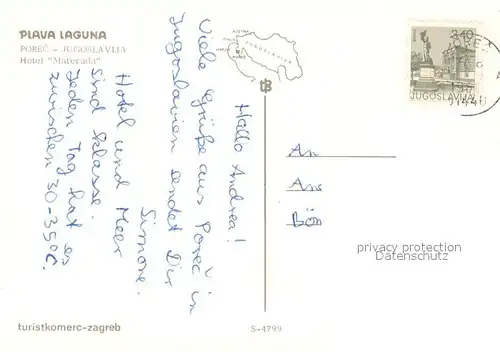 PLAVA LAGUNA
POREČ - JUGOSLAVIJA
Hotel "Materada"
JUGOSLAVIJA
POREČ
3.40
JUGOSLAVIJA
Hallo Andrea!
Viele Grüße aus Poreč in
Jugoslavien sendet Dir
Simone.
Hotel und Meer
sind klasse.
Jeden Tag hat es
zwischen 30-35°C.
An
An
Bön
privacy protection
Datenschutz
turistkomerc-zagreb
S-4799